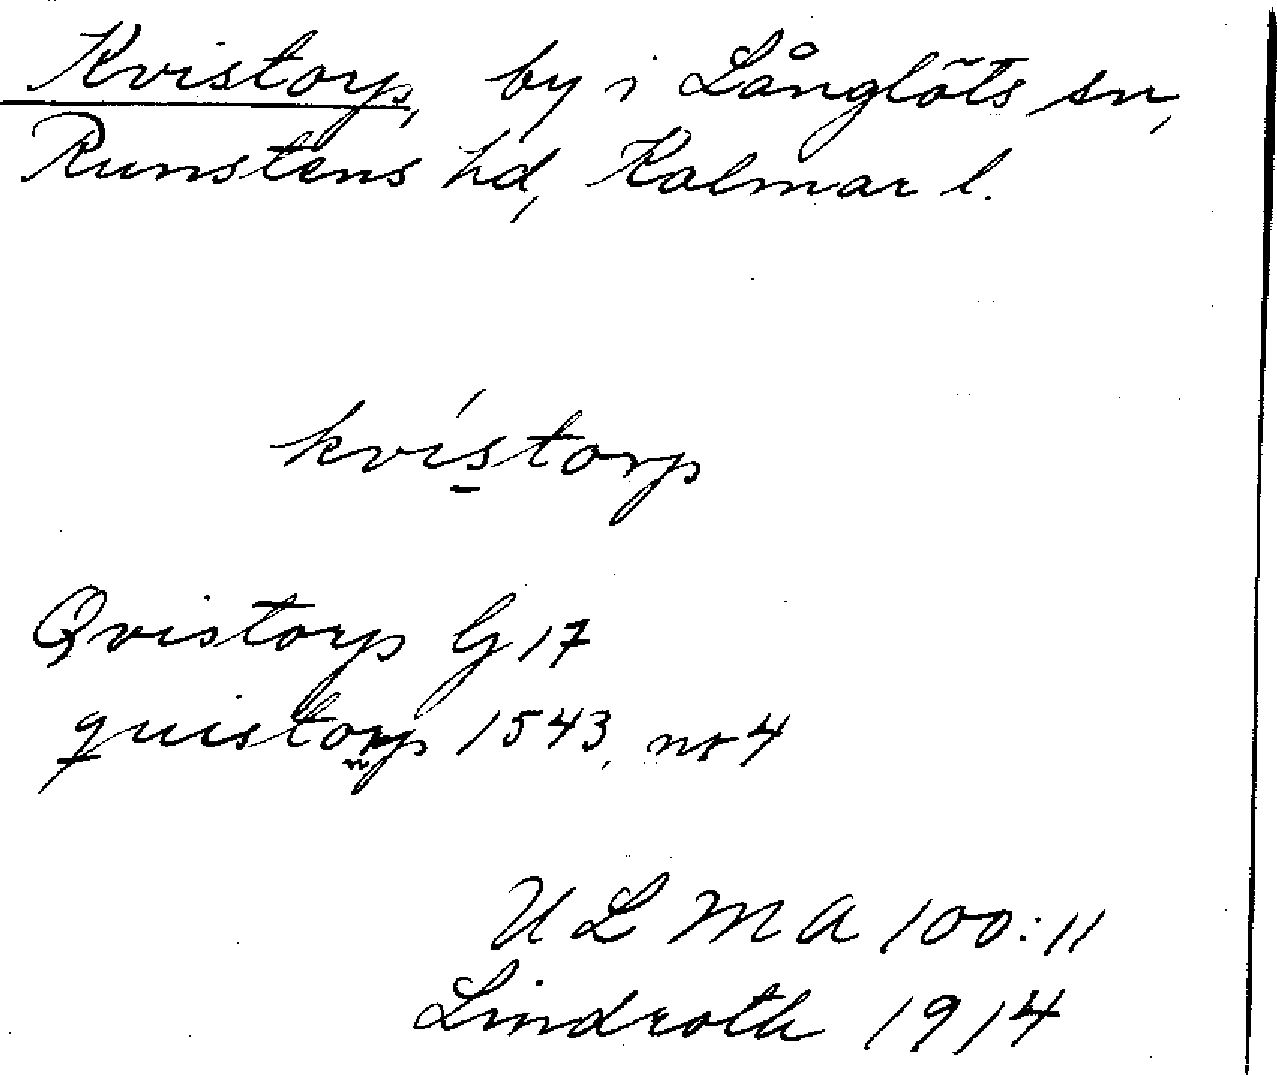 Kvistorp, by i Långlöts sn,
Runstens hd, Kalmar l.
kvístorp
Qvistorp G 17
quistorp 1543, nr 4
ULMA 100:11
Lindroth 1914